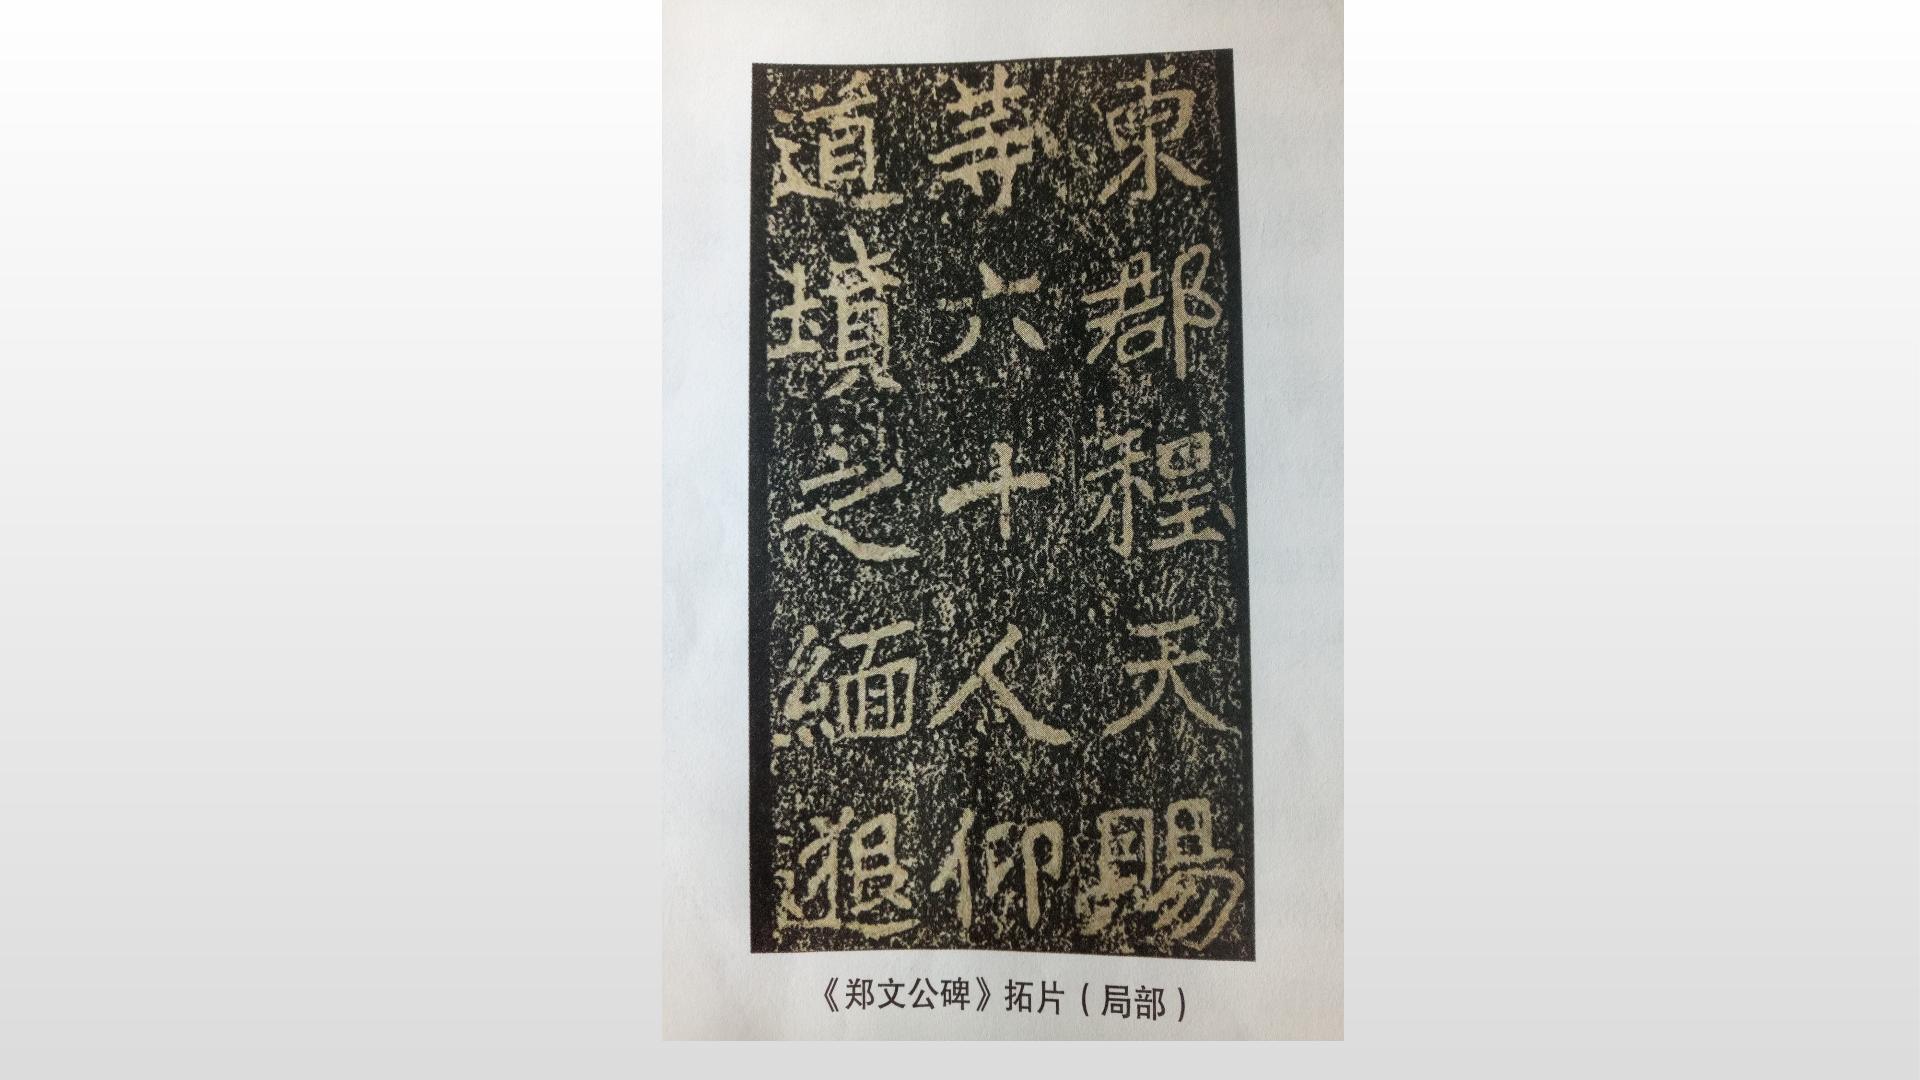 東郡程天賜
等六十人仰
道墳之緬邈
《郑文公碑》拓片(局部)